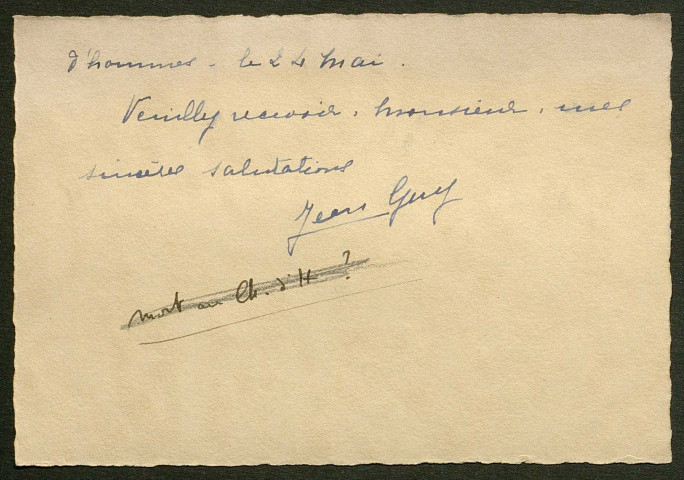 d'hommes - le 24 Mai.
Veuillez recevoir, Monsieur, mes
sincères salutations
Jean Guy
mort au Ch. d'H ?